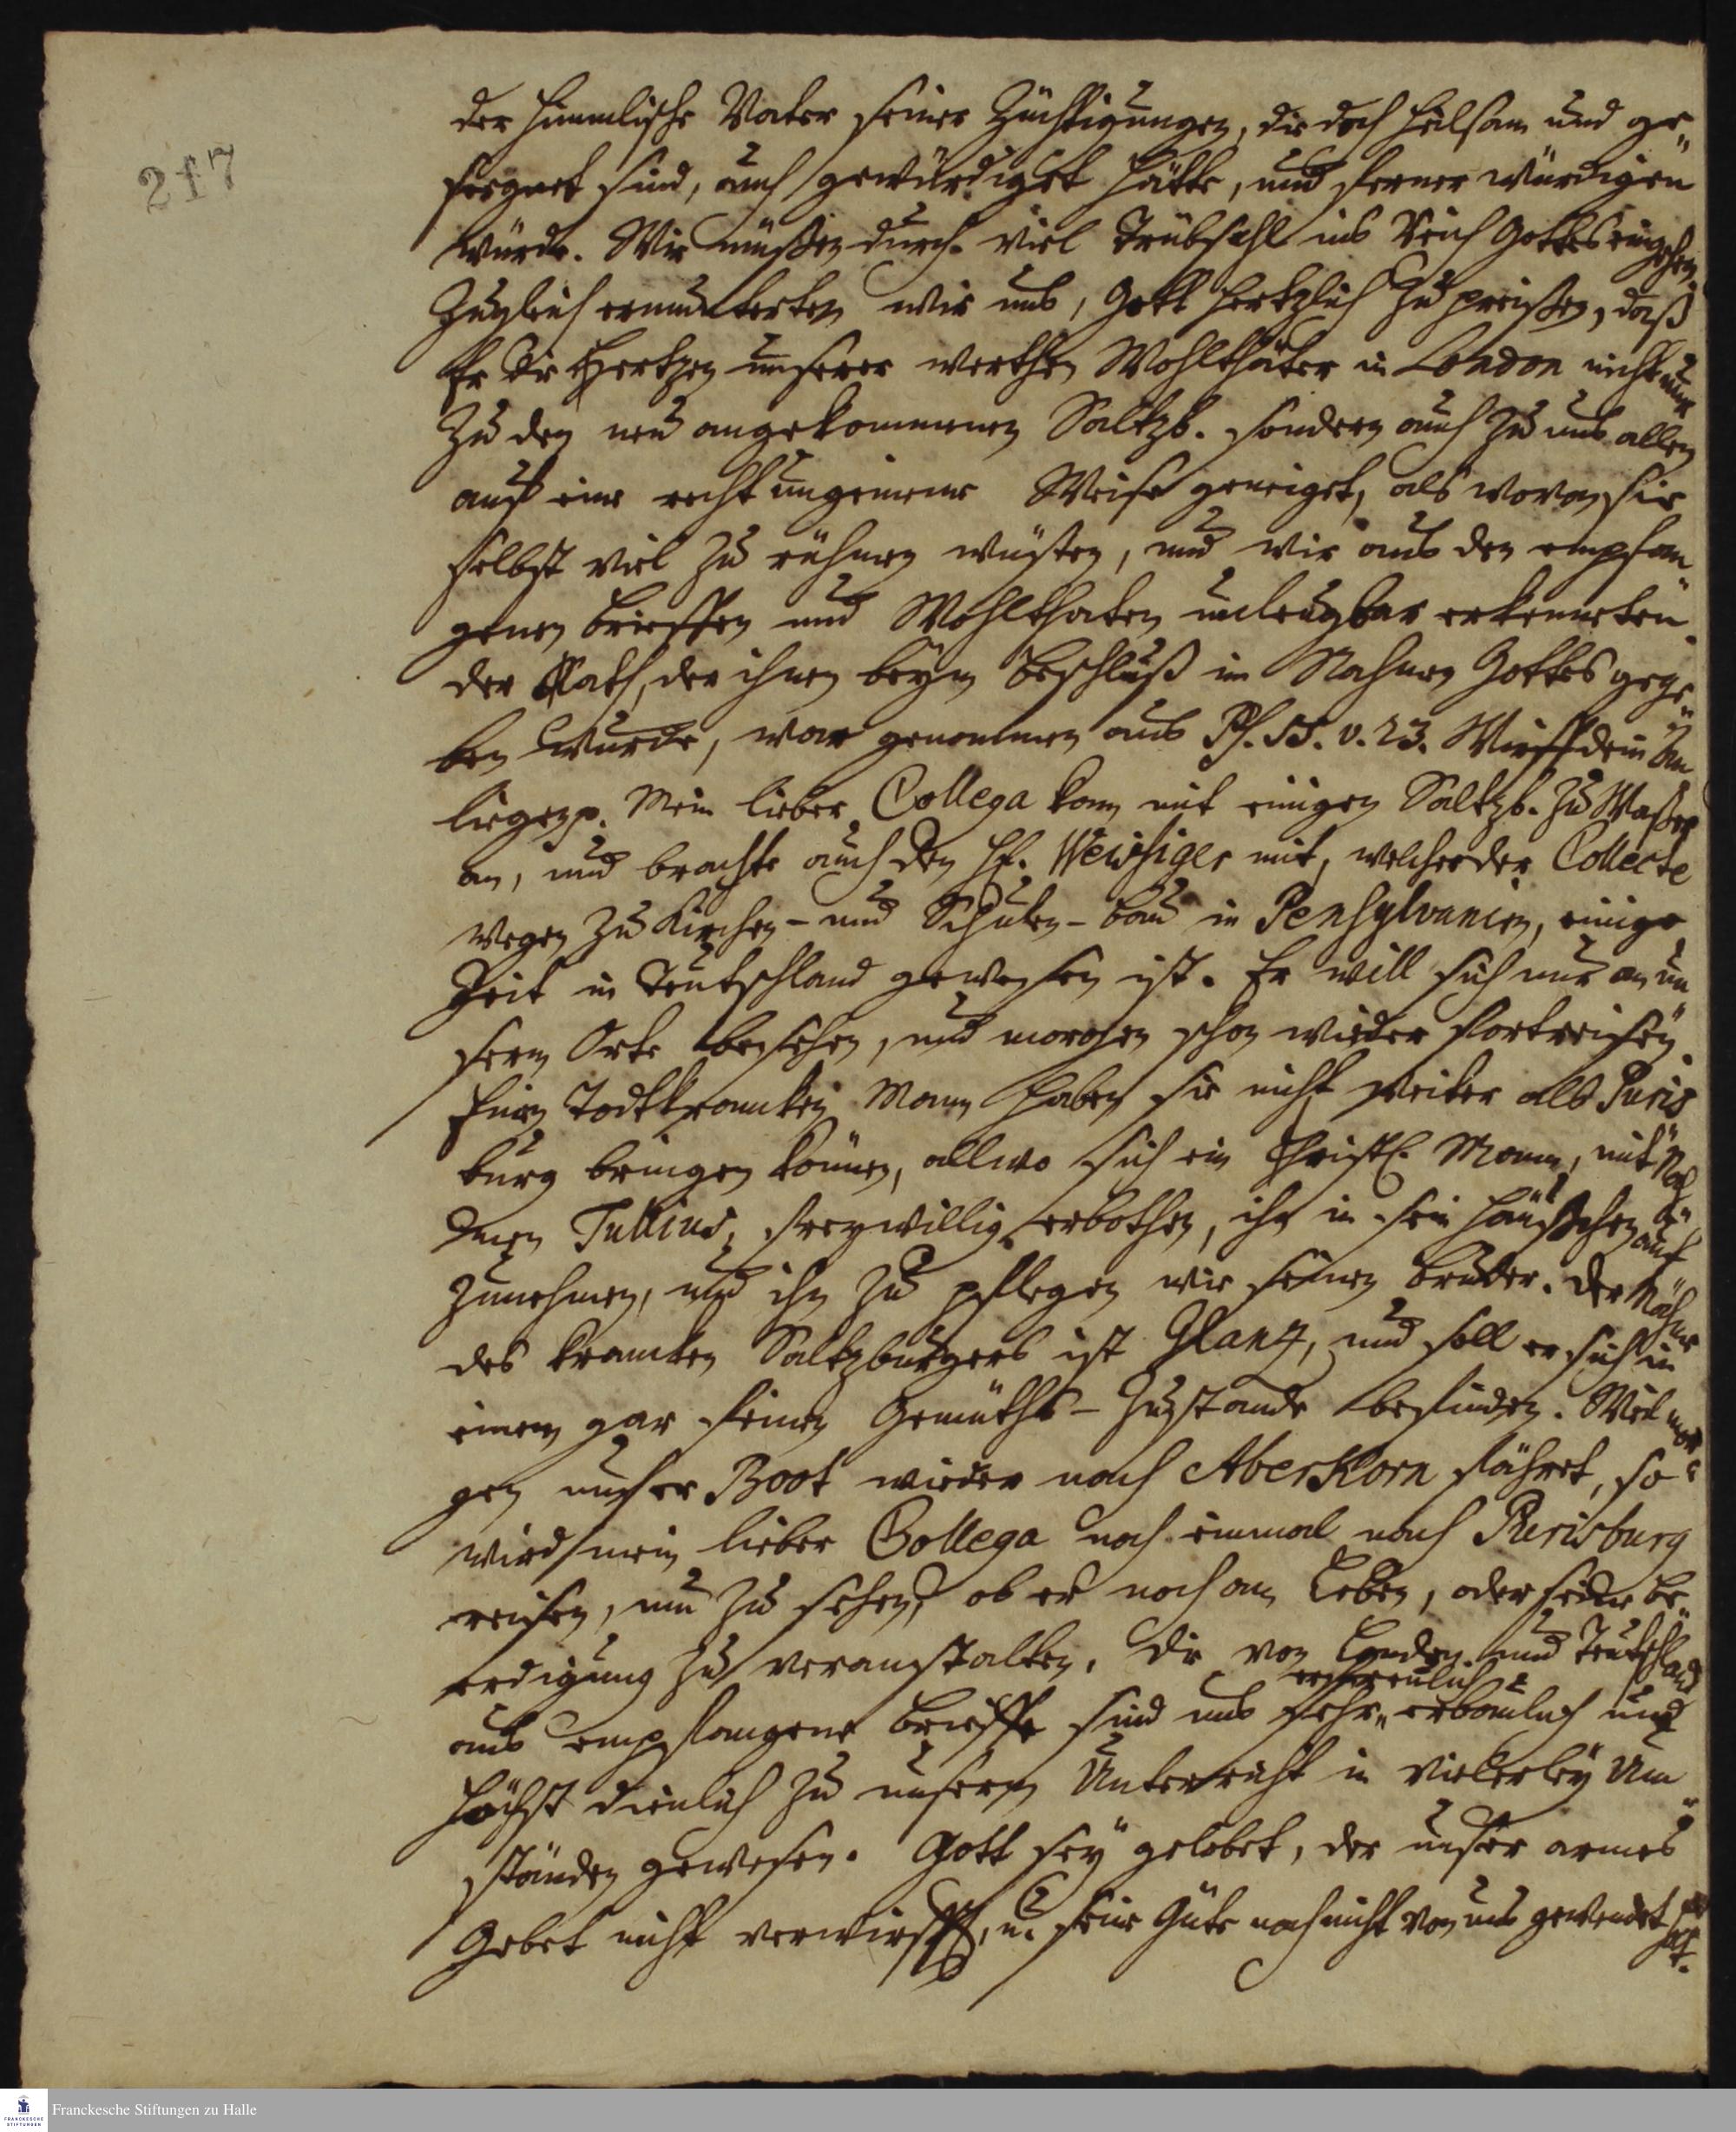 217
der himmlische Vater seiner Züchtigungen, die doch heilsam und ge„
segnet sind, auch gewürdiget hätte, und ferner würdigen
würde. Wir müßen durch viel Trübsahl ins Reich Gottes eingehen
Zugleich ermunterten wir uns, Gott hertzlich zu preißen, daß
Er die Hertzen unserer werthen Wohlthäter in London nicht nur
zu den neu angekommenen Saltzb. sondern auch zu uns allen
auf eine recht ungemeine Weise geneiget, als wovon sie
selbst viel zu rühmen wusten, und wir aus den empfan„
genen Brieffen und Wohlthaten unleugbar erkenneten.
Der Rath, der ihnen beym Beschluß im Nahmen Gottes gege„
ben wurde, war genommen aus Ps. 55. v. 23. Wirff dein An„
liegen p. Mein lieber Collega kam mit einigen Saltzb. zu Waßer
an, und brachte auch den H. Weissiger mit, welcher der Collecte
wegen zu Kirchen- und Schulen-bau in Pensylvanien, einige
Zeit in Teutschland gewesen ist. Er will sich nur an un„
serm Orte besehen, und morgen schon wieder fortreisen.
Einen Todtkrancken Mann haben sie nicht weiter als Puris
burg bringen können, allwo sich ein Christl. Mann, mit Nah
men Tullius, freywillig erbothen, ihn in sein Häußchen auf
zunehmen, und ihn zu pflegen wie seinen Bruder. Der Nahme
des krancken Saltzburgers ist Glantz, und soll er sich in
einem gar feinen Gemüths-Zustande befinden. Weil mor„
gen unser Boot wieder nach Aberkorn fähret, so
wird mein lieber Collega noch einmal nach Purisburg
reisen, um zu sehen, ob er noch am Leben, oder seine Be„
erdigung zu veranstalten. Die von London und Teutschland
aus empfangene Brieffe sind uns sehr „ erbaulich und
erfreulich
höchst dienlich zu unserm Unterricht in vielerley Um„
ständen gewesen. Gott sey gelobet, der unser armes
Gebet nicht verwirfft, u. seine Güte noch nicht von uns gewendet hat.
Franckesche Stiftungen zu Halle
FRANCKESCHE
STIFTUNGEN